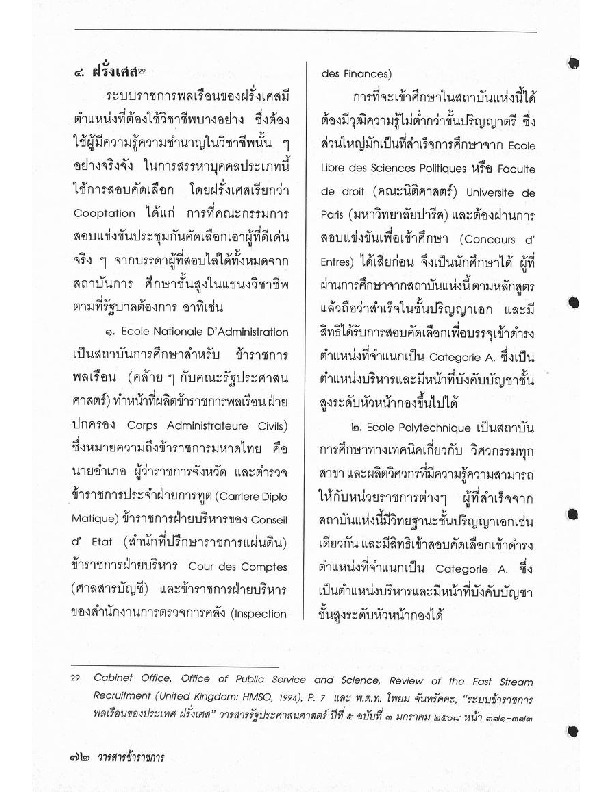 ๔. ฝรั่งเศส²²
ระบบราชการพลเรือนของฝรั่งเศสมี
ตำแหน่งที่ต้องใช้วิชาชีพบางอย่าง ซึ่งต้อง
ใช้ผู้มีความรู้ความชำนาญในวิชาชีพนั้น ๆ
อย่างจริงจัง ในการสรรหาบุคคลประเภทนี้
ใช้การสอบคัดเลือก โดยฝรั่งเศสเรียกว่า
Cooptation ได้แก่ การที่คณะกรรมการ
สอบแข่งขันประชุมกันคัดเลือกเอาผู้ที่ดีเด่น
จริง ๆ จากบรรดาผู้ที่สอบไล่ได้ทั้งหมดจาก
สถาบันการ ศึกษาชั้นสูงในแขนงวิชาชีพ
ตามที่รัฐบาลต้องการ อาทิเช่น
๑. Ecole Nationale D'Administration
เป็นสถาบันการศึกษาสำหรับ ข้าราชการ
พลเรือน (คล้าย ๆ กับคณะรัฐประศาสน
ศาสตร์) ทำหน้าที่ผลิตข้าราชการพลเรือน ฝ่าย
ปกครอง Corps Administrateure Civils)
ซึ่งหมายความถึงข้าราชการมหาดไทย คือ
นายอำเภอ ผู้ว่าราชการจังหวัด และตำรวจ
ข้าราชการประจำฝ่ายการทูต (Carriere Diplo
Matique) ข้าราชการฝ่ายบริหารของ Conseil
d' Etat (สำนักที่ปรึกษาราชการแผ่นดิน)
ข้าราชการฝ่ายบริหาร Cour des Comptes
(ศาลสารบัญชี) และข้าราชการฝ่ายบริหาร
ของสำนักงานการตรวจการคลัง (Inspection
des Finances)
การที่จะเข้าศึกษาในสถาบันแห่งนี้ได้
ต้องมีวุฒิความรู้ไม่ต่ำกว่าชั้นปริญญาตรี ซึ่ง
ส่วนใหญ่มักเป็นที่สำเร็จการศึกษาจาก Ecole
Libre des Sciences Politiques หรือ Faculte
de droit (คณะนิติศาสตร์) Universite de
Paris (มหาวิทยาลัยปารีส) และต้องผ่านการ
สอบแข่งขันเพื่อเข้าศึกษา (Concours d'
Entres) ได้เสียก่อน จึงเป็นนักศึกษาได้ ผู้ที่
ผ่านการศึกษาจากสถาบันแห่งนี้ตามหลักสูตร
แล้วถือว่าสำเร็จในชั้นปริญญาเอก และมี
สิทธิได้รับการสอบคัดเลือกเพื่อบรรจุเข้าดำรง
ตำแหน่งที่จำแนกเป็น Categorie A. ซึ่งเป็น
ตำแหน่งบริหารและมีหน้าที่บังคับบัญชาชั้น
สูงระดับหัวหน้ากองขึ้นไปได้
๒. Ecole Polytechnique เป็นสถาบัน
การศึกษาทางเทคนิคเกี่ยวกับ วิศวกรรมทุก
สาขา และผลิตวิศวกรที่มีความรู้ความสามารถ
ให้กับหน่วยราชการต่างๆ ผู้ที่สำเร็จจาก
สถาบันแห่งนี้มีวิทยฐานะชั้นปริญญาเอกเช่น
เดียวกัน และมีสิทธิเข้าสอบคัดเลือกเข้าดำรง
ตำแหน่งที่จำแนกเป็น Categorie A. ซึ่ง
เป็นตำแหน่งบริหารและมีหน้าที่บังคับบัญชา
ชั้นสูงระดับหัวหน้ากองได้
22 Cabinet Office, Office of Public Service and Science, Review of the Fast Stream
Recruitment (United Kingdom: HMSO, 1994), P. 7 และ พ.ต.ท. ไพยม จันทรัคคะ, "ระบบข้าราชการ
พลเรือนของประเทศ ฝรั่งเศส" วารสารรัฐประศาสนศาสตร์ ปีที่ ๕ ฉบับที่ ๓ มกราคม ๒๕๐๘ หน้า ๓๗๑-๓๗๓
๗๒ วารสารข้าราชการ